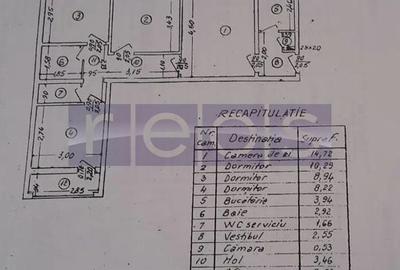 3
2
1
5
2,95
3,43
4,60
2,00
6
11
10
9
1,50
1,85
95
3,15
1,10
8
7
4
2,74
3,00
12
2,85
rebs
RECAPITULATIE
Nr. cam. Destinatia Supraf.
1 Camera de zi 14,72
2 Dormitor 10,29
3 Dormitor 8,94
4 Dormitor 8,22
5 Bucătărie 3,94
6 Baie 2,92
7 WC serviciu 1,66
8 Vestibul 2,55
9 Cămara 0,53
10 Hol 3,46